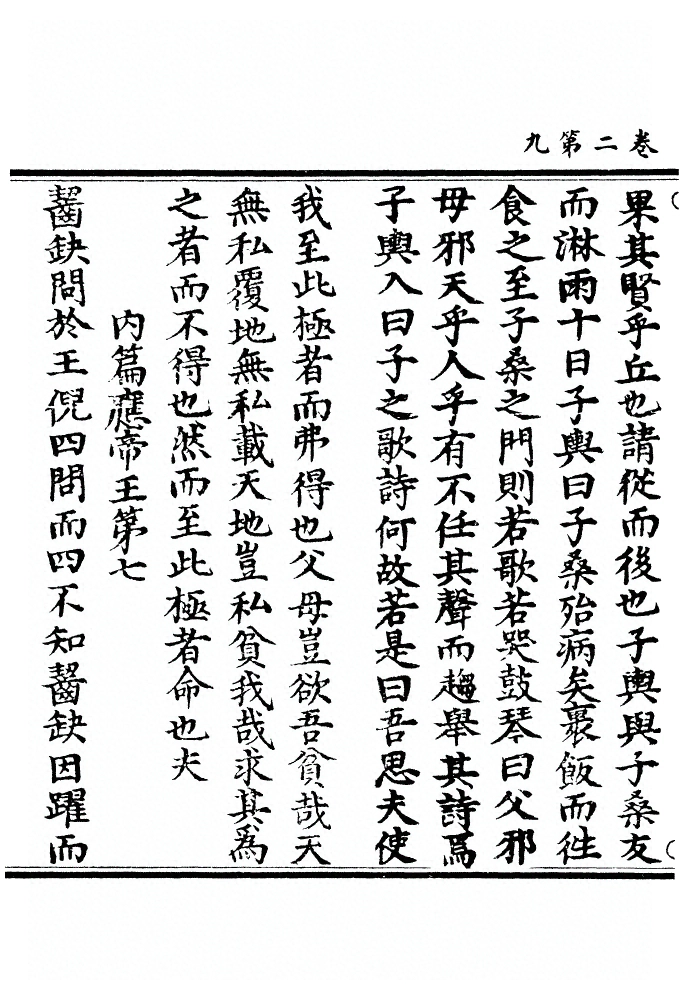 卷二第九
果其賢乎丘也請從而後也子輿與子桑友
而淋雨十日子輿曰子桑殆病矣裹飯而徃
食之至子桑之門則若歌若哭鼓琴曰父邪
母邪天乎人乎有不任其聲而趨舉其詩焉
子輿入曰子之歌詩何故若是曰吾思夫使
我至此極者而弗得也父母豈欲吾貧哉天
無私覆地無私載天地豈私貧我哉求其為
之者而不得也然而至此極者命也夫
内篇應帝王第七
齧缺問於王倪四問而四不知齧缺因躍而